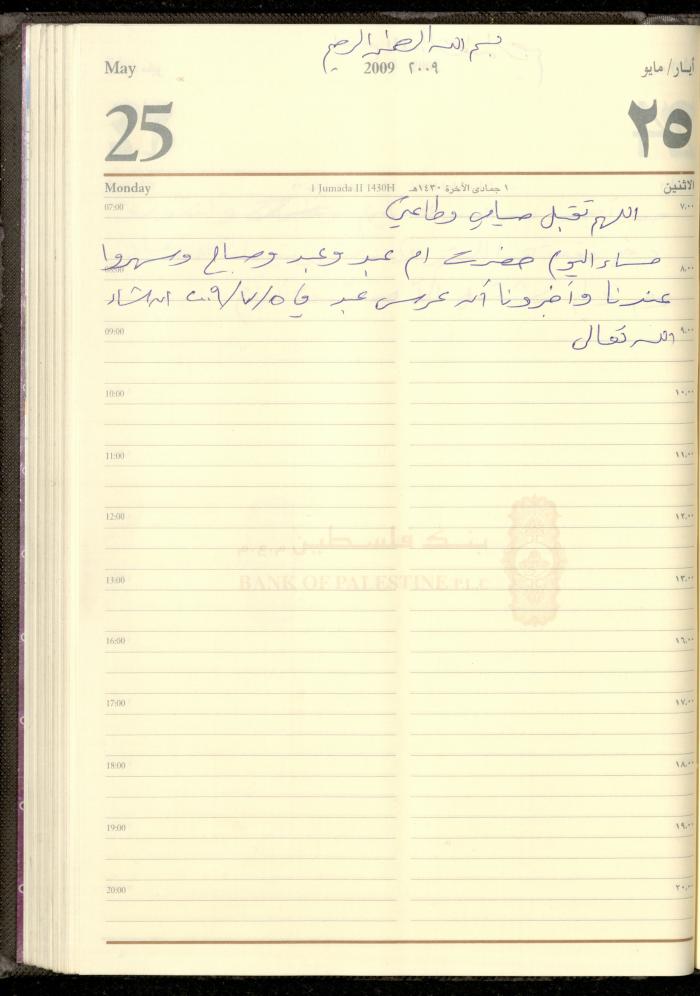 بسم الله الرحمن الرحيم
May 2009 ٢٠٠٩ أيار/ مايو
25 ٢٥
Monday 1 Jumada II 1430H ١ جمادى الآخرة ١٤٣٠هـ الاثنين
07:00 ٧،٠٠
اللهم تقبل صيامي وطاعتي
مساء اليوم حضرت ام عبد وعبد وصباح وسهروا
08:00 ٨،٠٠
عندنا وأخبرونا أن عرس عبد في ٢٠٠٩/٧/٥ ان شاء
09:00 ٩،٠٠
الله تعالى
10:00 ١٠،٠٠
11:00 ١١،٠٠
12:00 ١٢،٠٠
بنك فلسطين م.ع.م
13:00 ١٣،٠٠
BANK OF PALESTINE P.L.C
16:00 ١٦،٠٠
17:00 ١٧،٠٠
18:00 ١٨،٠٠
19:00 ١٩،٠٠
20:00 ٢٠،٠٠